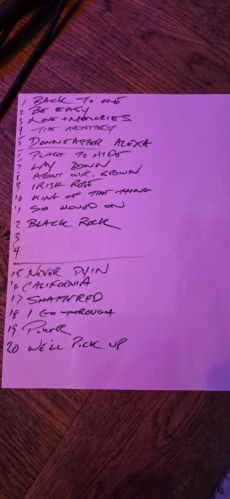 1 BACK TO ONE
2 BE EASY
3 LOVE + MEMORIES
4 THE ARCHITECT
5 DOWNEASTER ALEXA
6 PLACE TO HIDE
7 LAY DOWN
8 ABOUT MR. BROWN
9 IRISH ROSE
10 KING OF THE THING
11 SO MOVED ON
12 BLACK ROCK
3
4
15 NEVER DYIN
16 CALIFORNIA
17 SHATTERED
18 I GO THROUGH
19 POKER
20 WE'LL PICK UP